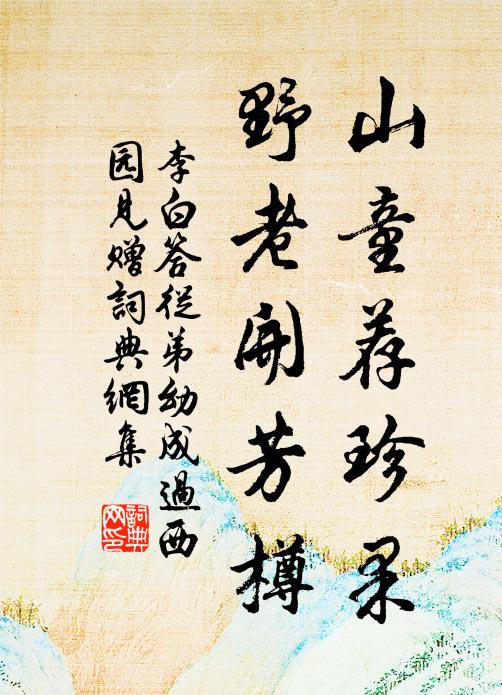 山童荐珍果
野老開芳樽
李白答從弟幼成過西
园見贈詞典網集
詞典
网印